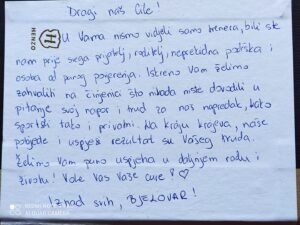 Dragi naš Cile!
HENZO
U Vama nismo vidjeli samo trenera, bili ste
nam prije svega prijatelj, roditelj, neprekidna podrška i
osoba od punog povjerenja. Iskreno Vam želimo
zahvaliti na činjenici što nikada niste dovodili u
pitanje svoj napor i trud za naš napredak, kako
sportski tako i privatni. Na kraju krajeva, naše
pobjede i uspjesi rezultat su Vašeg truda.
Želimo Vam puno uspjeha u daljnjem radu i
životu! Vole Vas Vaše cure! ♡
Iznad svih, BJELOVAR!